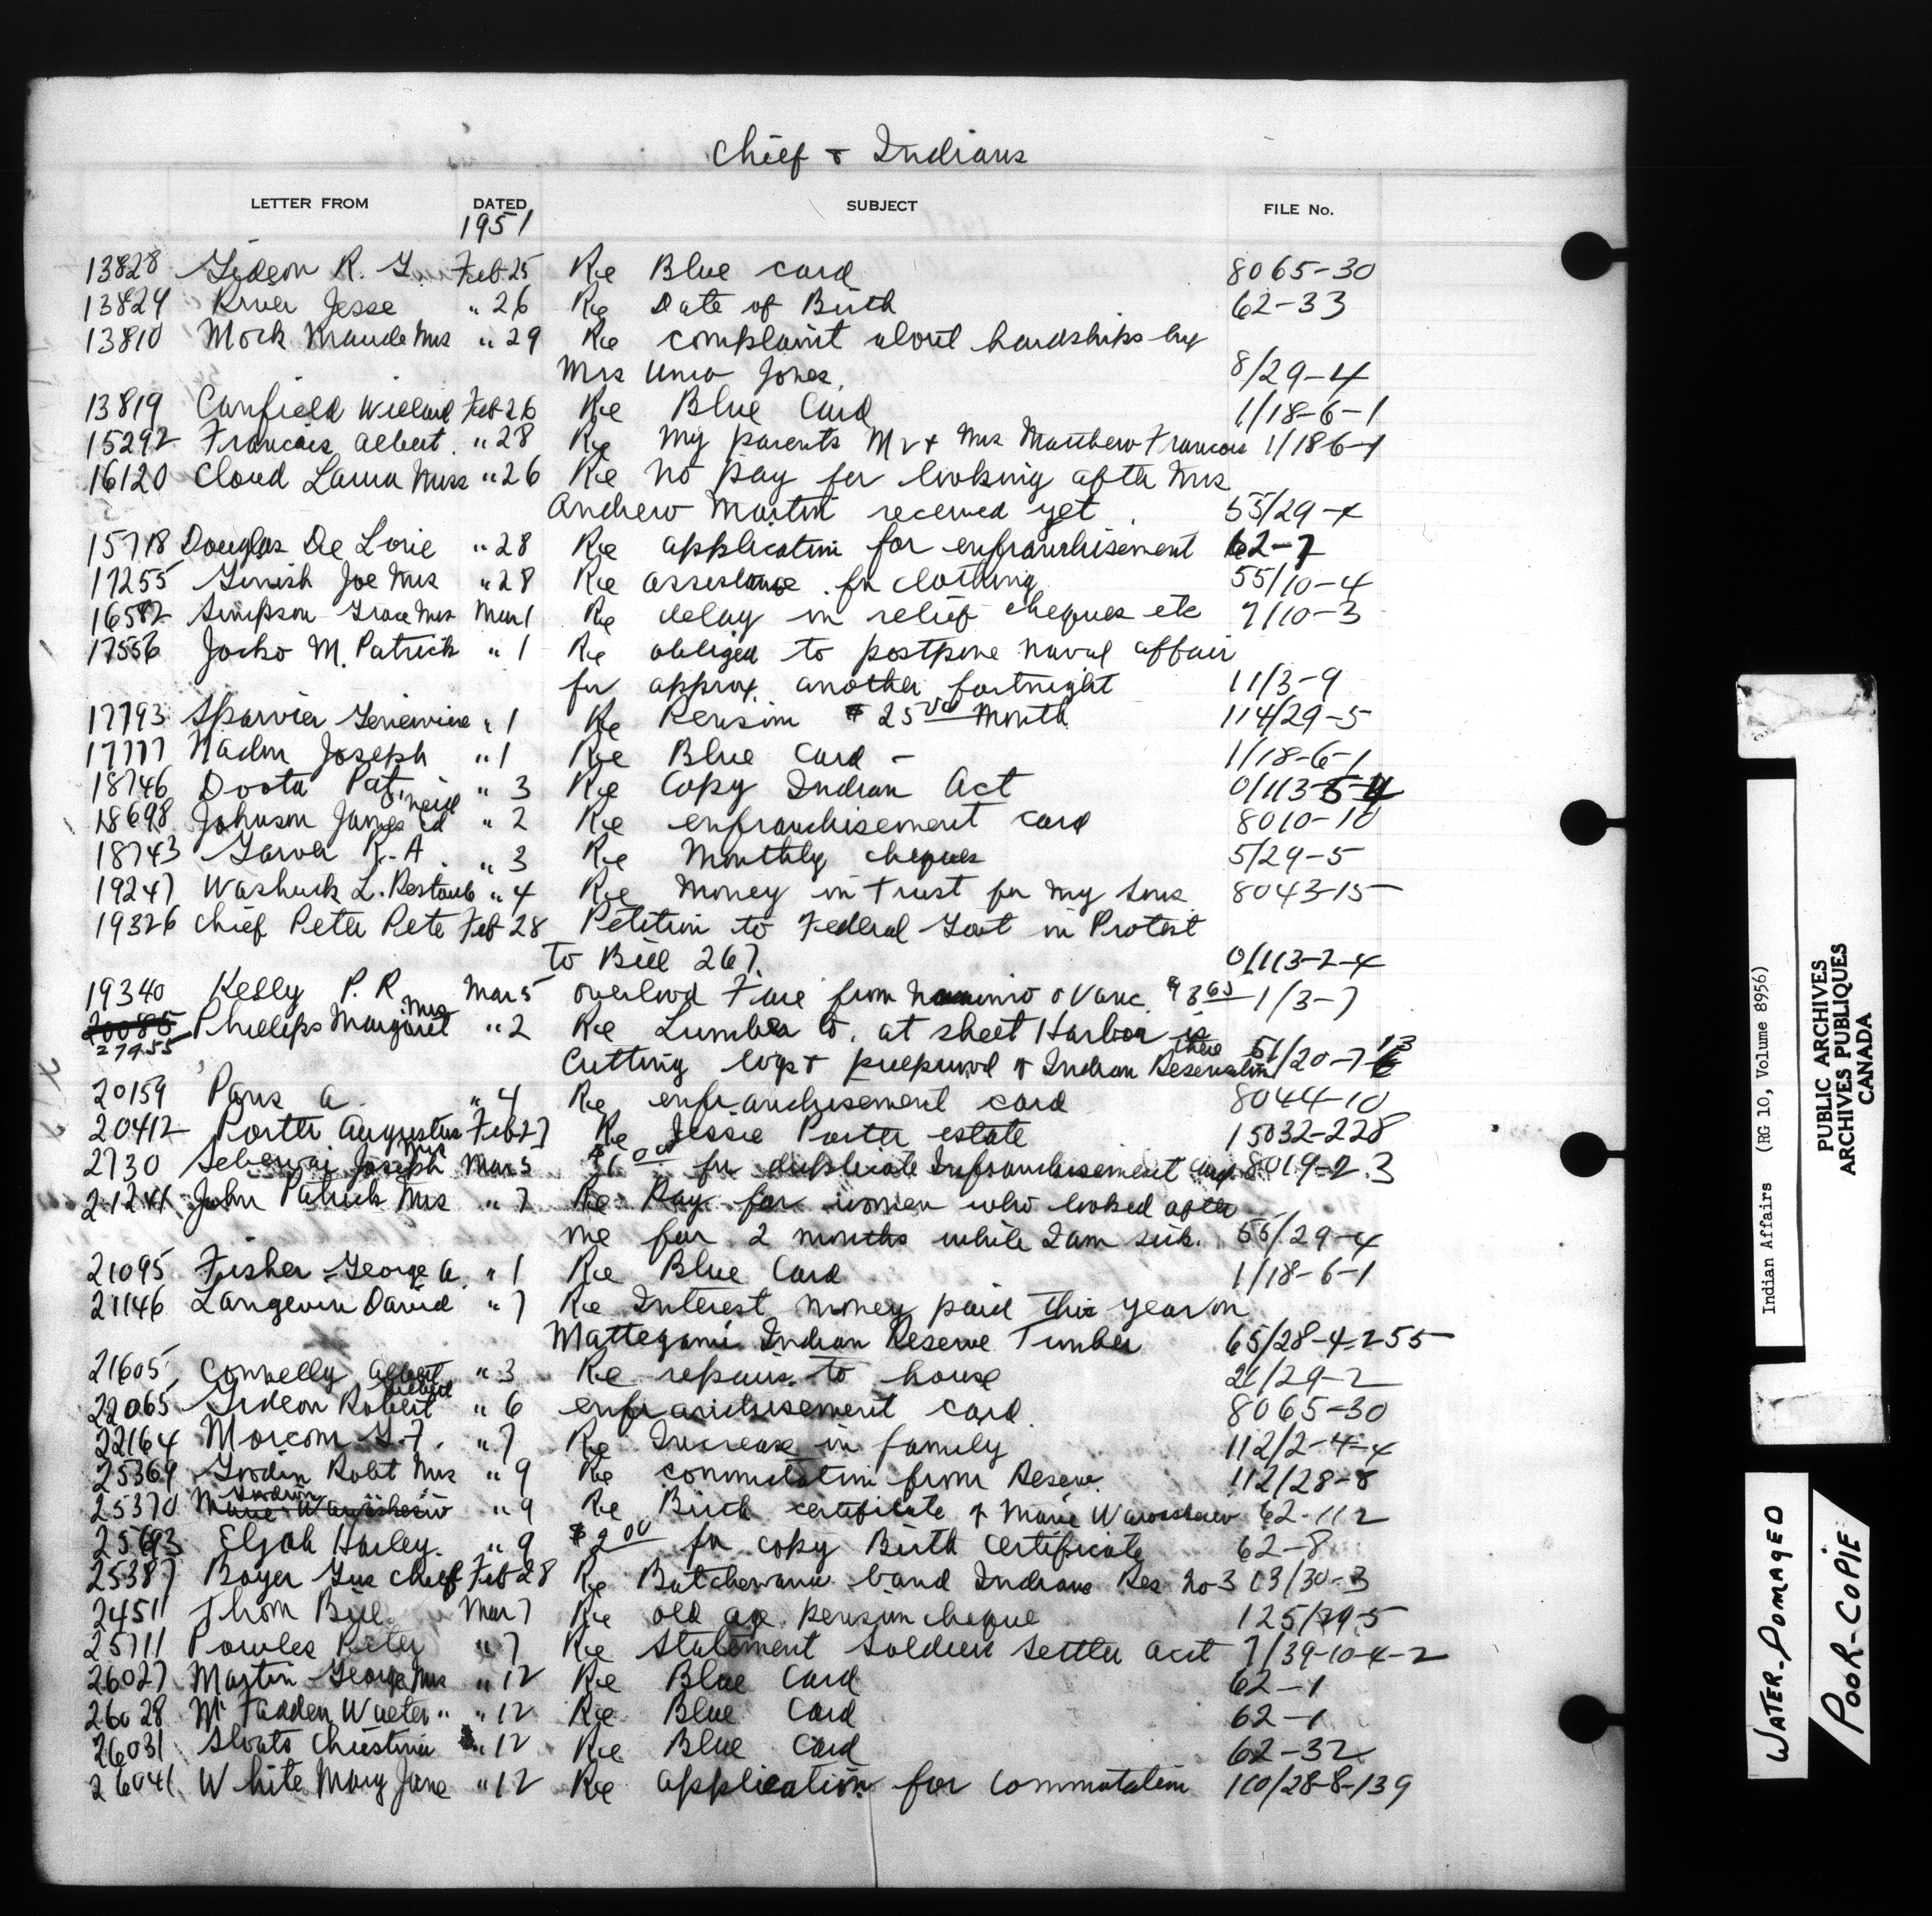 Chief & Indians
LETTER FROM DATED SUBJECT FILE No.
1951
13828 Gideon R. G. Feb 25 Re Blue card 8065-30
13824 River Jesse " 26 Re Date of Birth 62-33
13810 Mock Maude Mrs " 29 Re complaint about hardships by
Mrs Jones. 8/29-4
13819 Canfield Willard Feb 26 Re Blue Card 1/18-6-1
15292 Francais Albert. " 28 Re my parents Mr & Mrs Matthew Francais 1/186-1
16120 Cloud Laura Miss " 26 Re no pay for looking after Mrs
Andrew Martin received yet. 55/29-4
15718 Douglas De Lorie " 28 Re application for enfranchisement 62-7
17255 Ginish Joe Mrs " 28 Re assistance for clothing 55/10-4
16582 Simpson Grace Mrs Mar 1 Re delay in relief cheques etc 7/10-3
17556 Jocko M. Patrick " 1 Re obliged to postpone naval affair
for approx. another fortnight 11/3-9
17793 Sparvier Genevieve " 1 Re Pension $25 00 month 114/29-5
17777 Joseph " 1 Re Blue Card - 1/18-6-1
18746 Doota Pat. " 3 Re Copy Indian Act 0/113-5-4
18698 Johnson James " 2 Re enfranchisement card 8010-10
18743 Garver R. A. " 3 Re Monthly cheques 5/29-5
19247 Washuck L. " 4 Re Money in Trust for my sons 8043-15
19326 Chief Peter Pete Feb 28 Petition to Federal Govt in Protest
to Bill 267. 0/113-2-4
19340 Kelly P. R. Mar 5 Fare from Vanc. 1/3-7
20085 Phillips Margaret Mrs " 2 Re Lumber Co. at sheet Harbor is
27955 cutting logs & pulpwood of Indian Reservation there 51/20-7-13
20159 Paris a. " 4 Re enfranchisement card 8044-10
20412 Porter Augustus Feb 27 Re Jessie Porter estate 15032-228
2730 Joseph Mrs Mar 5 $1 00 for duplicate Enfranchisement Card 8019-2.3
21241 John Patrick Mrs " 7 Re Pay for women who looked after
me for 2 months while I am sick. 55/29-4
21095 Fisher George A. " 1 Re Blue Card 1/18-6-1
21146 Langevin David " 7 Re Interest money paid this year on
Mattegami Indian Reserve Timber 65/28-4-255
21605 Connelly Albert " 3 Re repairs to house 21/29-2
22065 Gideon Robert " 6 enfranchisement card. 8065-30
22164 Morcom G. F. " 7 Re Increase in family 112/2-4-4
25369 Gordin Robt Mrs " 9 Re commutation from Reserve. 112/28-8
25370 Gordin " 9 Re Birth certificate of Marie 62-112
25693 Elijah Harley. " 9 $2 00 for copy Birth Certificate 62-8
25387 Boyer Gus Chief Feb 28 Re Batchewana band Indians Res No-3 13/30-3
2451 Thom Bill Mar 7 Re old age pension cheque 125/29-5
25711 Powles Peter " 7 Re Statement Soldiers Settler act 7/39-10-4-2
26027 Martin George Mrs " 12 Re Blue Card 62-1
26028 McFadden Walter " " 12 Re Blue Card 62-1
26031 Christina " 12 Re Blue Card 62-32
26041 White Mary Jane " 12 Re application for commutation 110/28-8-139
Indian Affairs (RG 10, Volume 8956)
PUBLIC ARCHIVES
ARCHIVES PUBLIQUES
CANADA
WATER-DOMAGED
POOR-COPIE